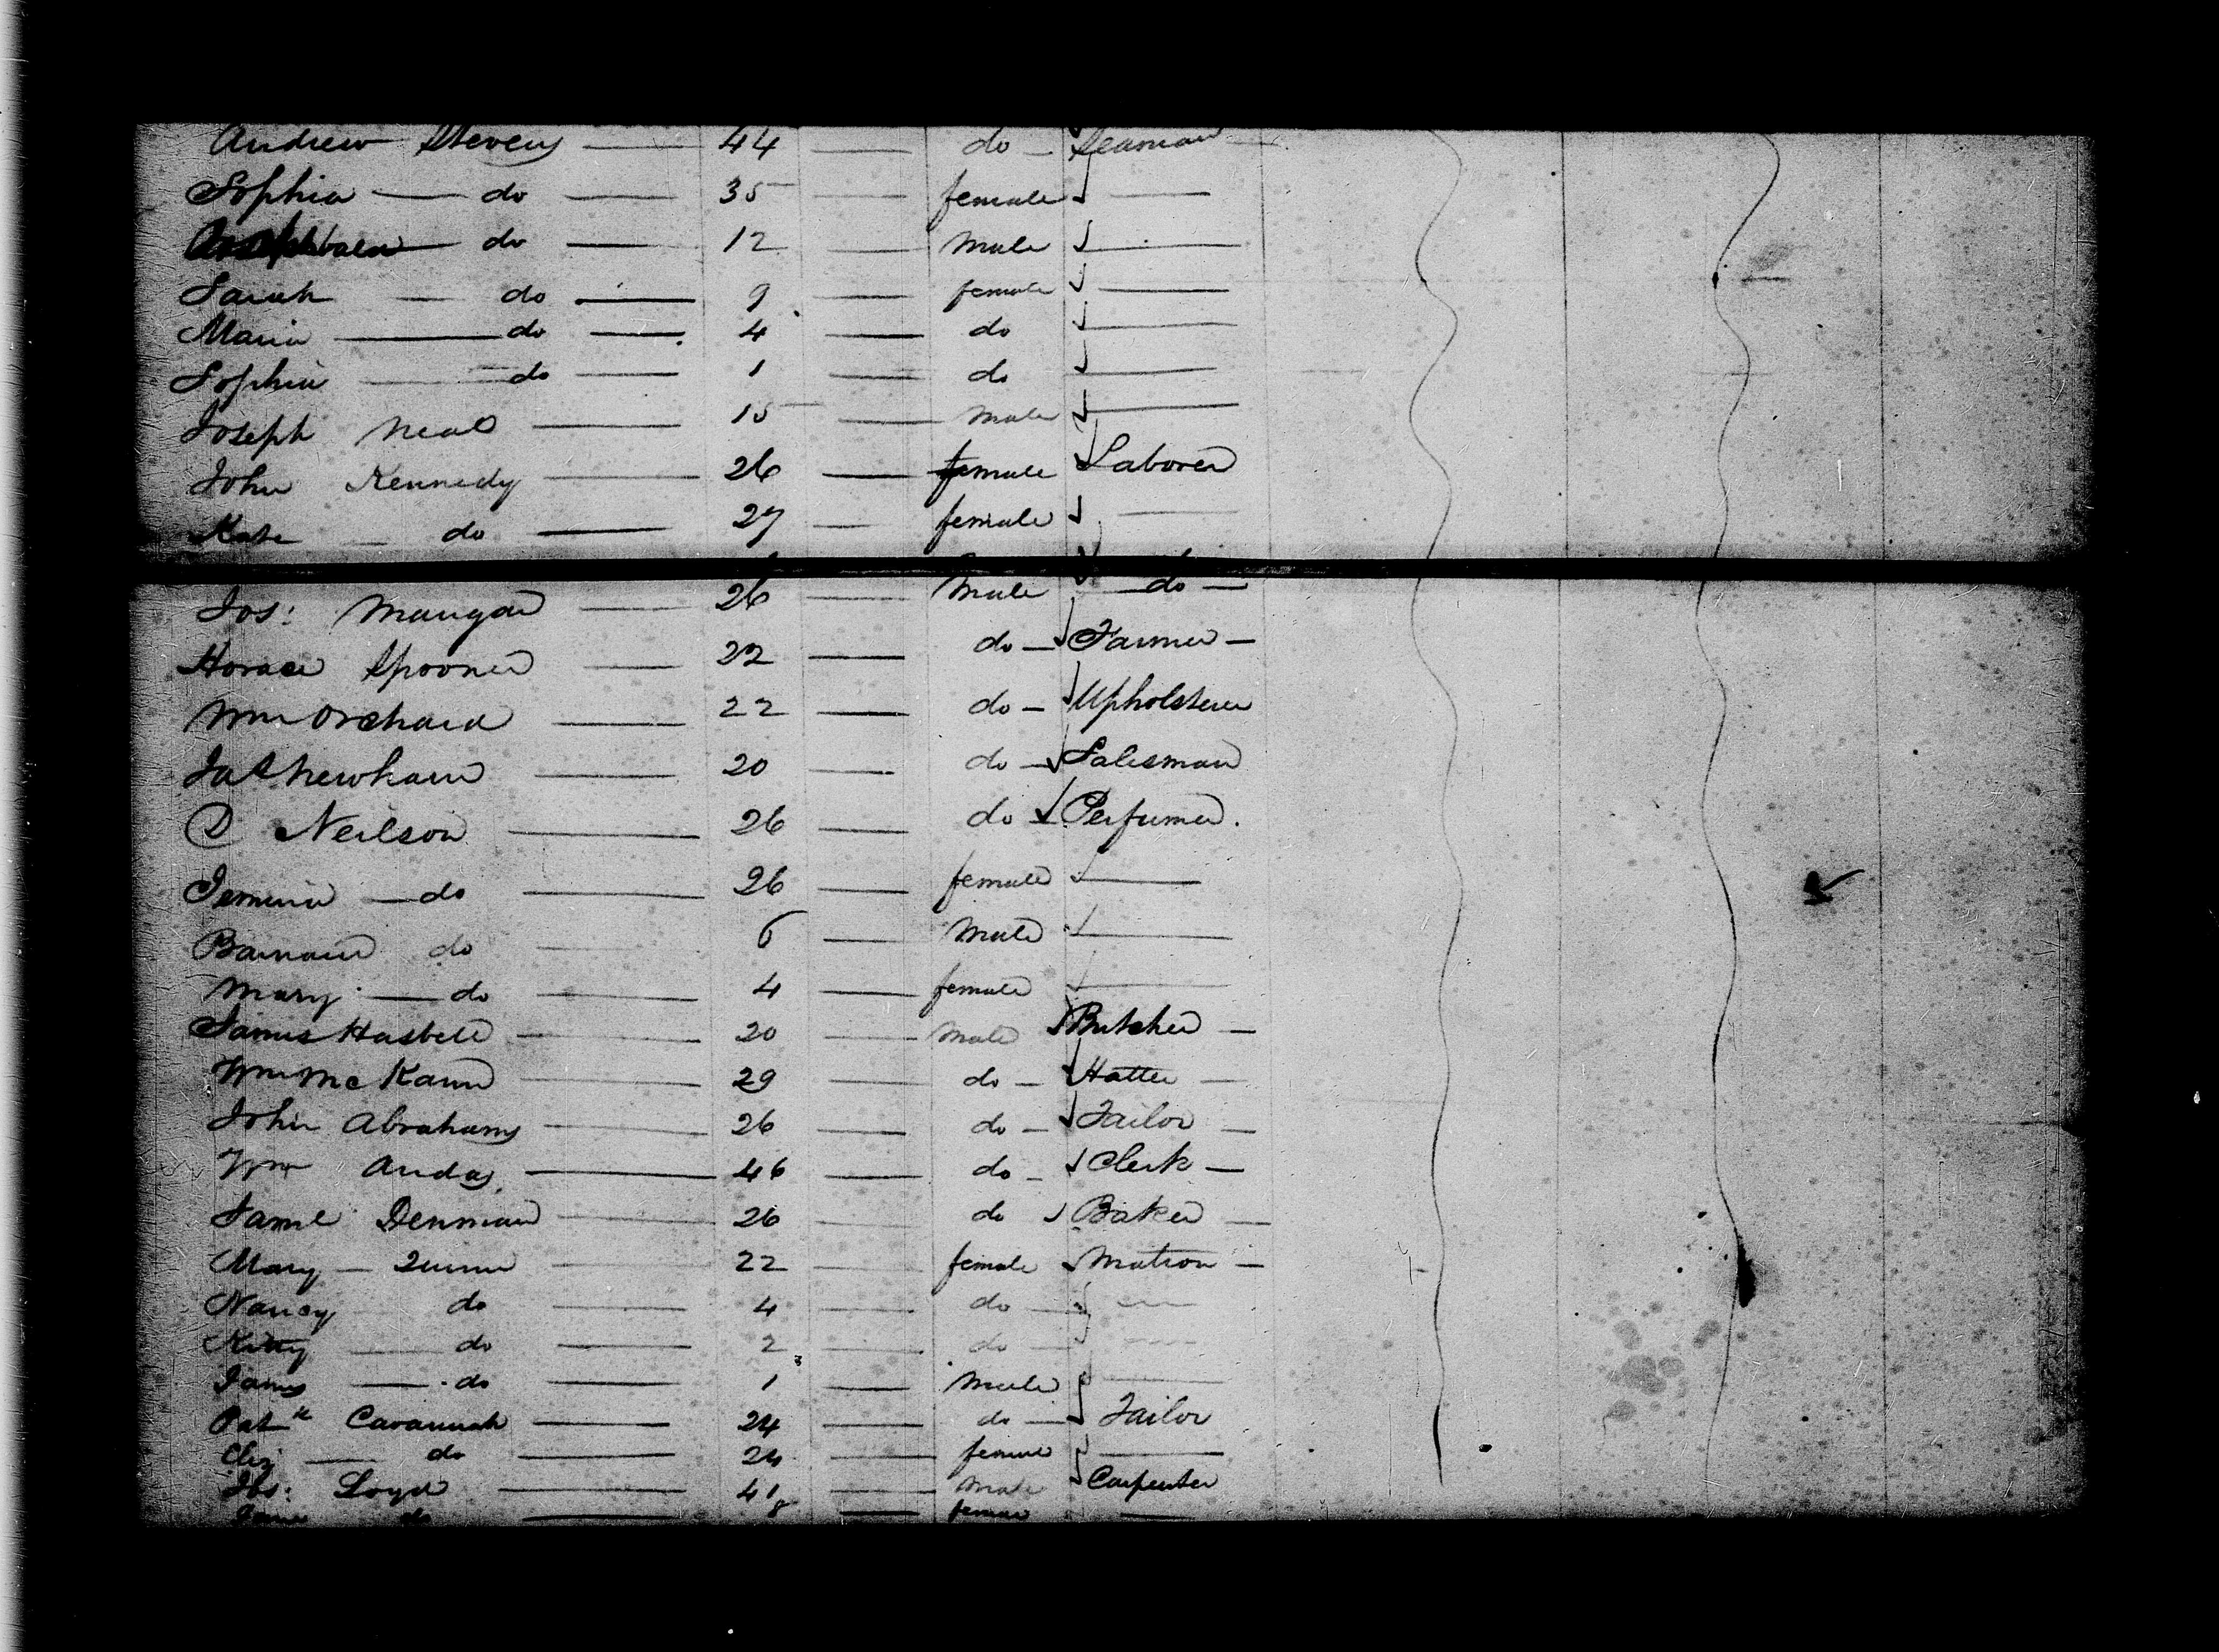 Andrew Stevens 44 do Seaman
Sophia do 35 female
do 12 Male
Sarah do 9 female
Maria do 4 do
Sophia do 1 do
Joseph Neal 15 Male
John Kennedy 26 female Laborer
Kate do 27 female
Jos: Mangan 26 Male do
Horace Spooner 22 do Farmer
Wm Orchard 22 do Upholsterer
Newham 20 do Salesman
C Neilson 26 do Perfumer.
Jemima do 26 female
Barnard do 6 Male
Mary do 4 female
James Hasbell 20 Male Butcher
Wm McKann 29 do Hatter
John Abrahams 26 do Tailor
Wm Andas 46 do Clerk
Saml Denman 26 do Baker
Mary Quinn 22 female Matron
Nancy do 4 do
Kitty do 2 do
James do 1 Male
Patk Cavannah 24 do Tailor
Eliz do 24 female
Jos: Loyd 41 Male Carpenter
do 8 female